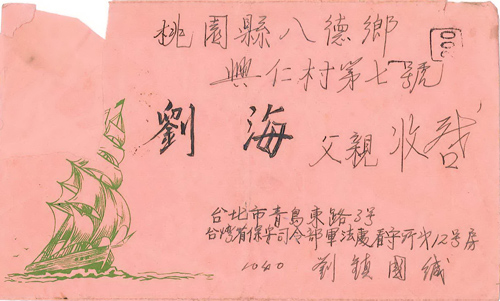 桃園縣八德鄉
興仁村第七號
劉海 父親 收啓
台北市青島東路3号
台湾省保安司令部軍法處看守所第12号房
1040 劉鎮國緘